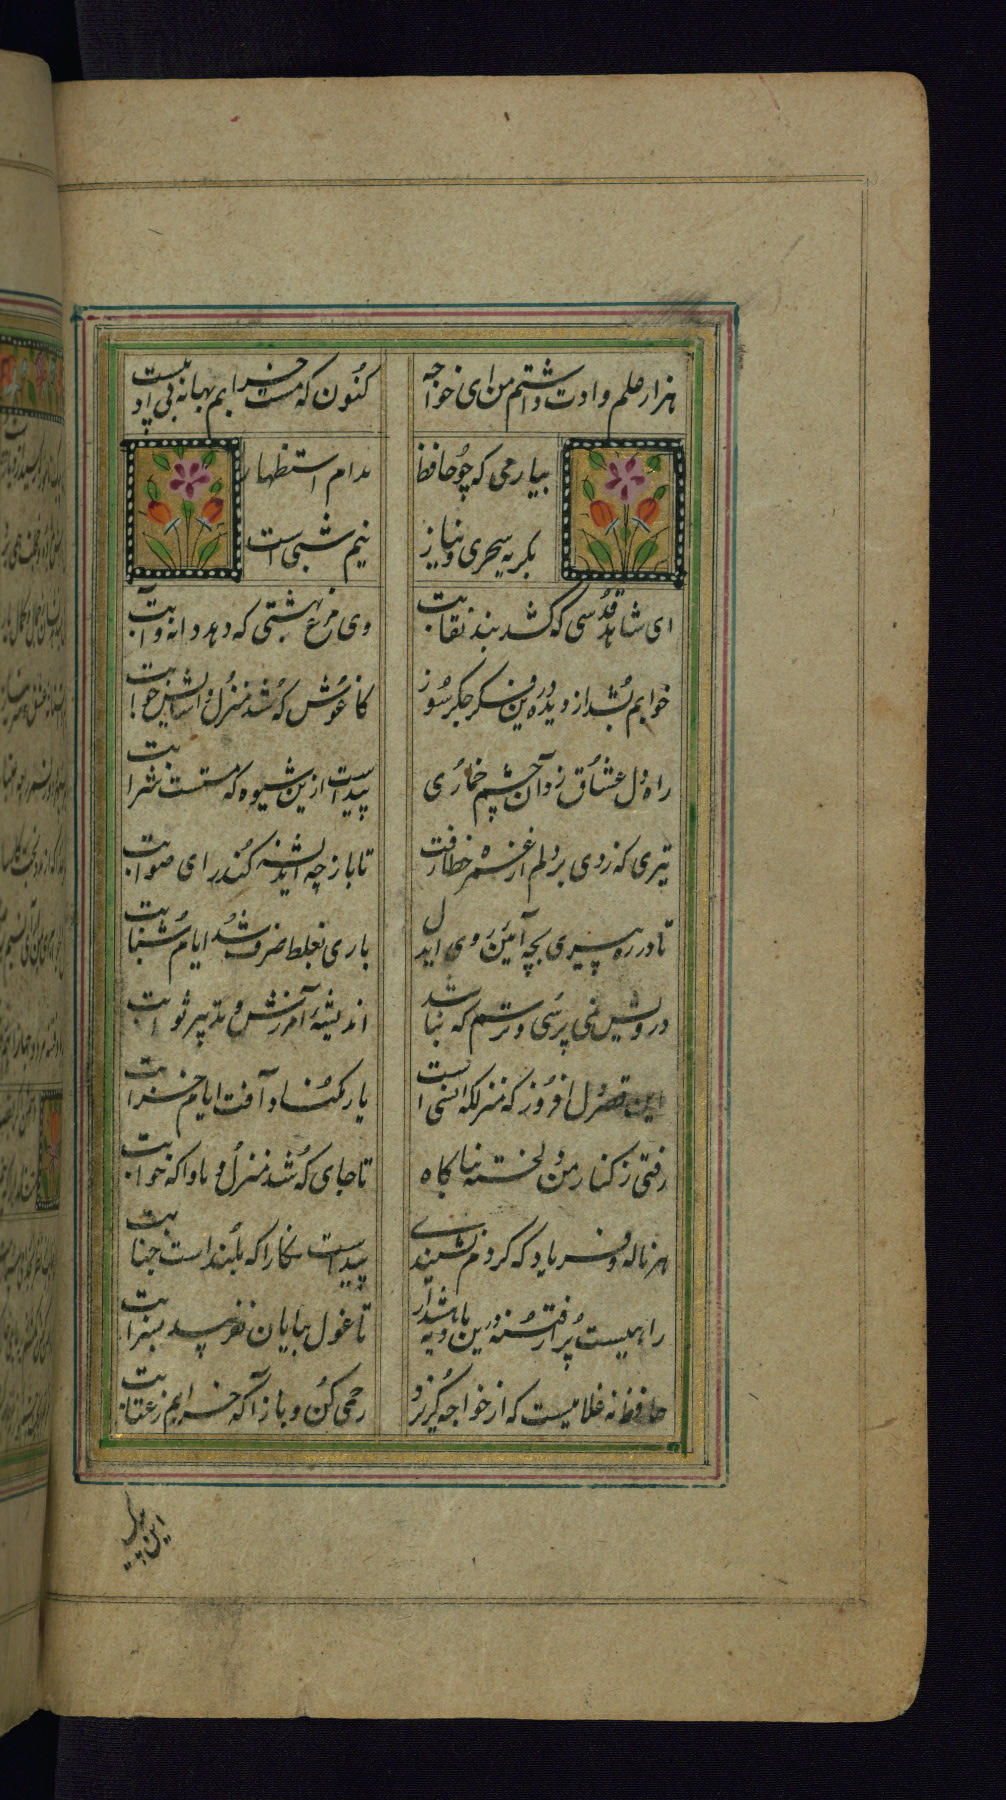 هزار علم و ادب داشتم من ای خواجه
کنون که مست خرابم بهانه بی ادبیست
بیار می که چو حافظ مدام استظهار
بگریه سحری و نیاز نیم شبی است
ای شاهد قدسی که کشد بند نقابت
وی مرغ بهشتی که دهد دانه و آبت
خوابم بشد از دیده درین فکر جگر سوز
کاغوش که شد منزل و آسایش خوابت
راه دل عشاق زد آن چشم خماری
پیداست ازین شیوه که مستست شرابت
تیری که زدی بر دلم از غمزه خطا رفت
تا باز چه اندیشه کند رای صوابت
تا در ره پیری بچه آئین روی ای دل
باری بغلط صرف شد ایام شبابت
درویش نمی پرسی و ترسم که نباشد
اندیشه آمرزش و تدبیر ثوابت
این قصر دل افروز که منزلگه انسی است
یارب مکناد آفت ایام خرابت
رفتی ز کنار من دلخسته بناگاه
تا جای که شد منزل و ماواگه خوابت
هر ناله و فریاد که کردم نشنیدی
پیداست نگارا که بلند است جنابت
راهیست پر از فتنه درین بادیه هشدار
تا غول بیابان نفریبد بسرابت
حافظ نه غلامیست که از خواجه گریزد
رحمی کن و باز آ که خرابم ز عتابت
این پیک